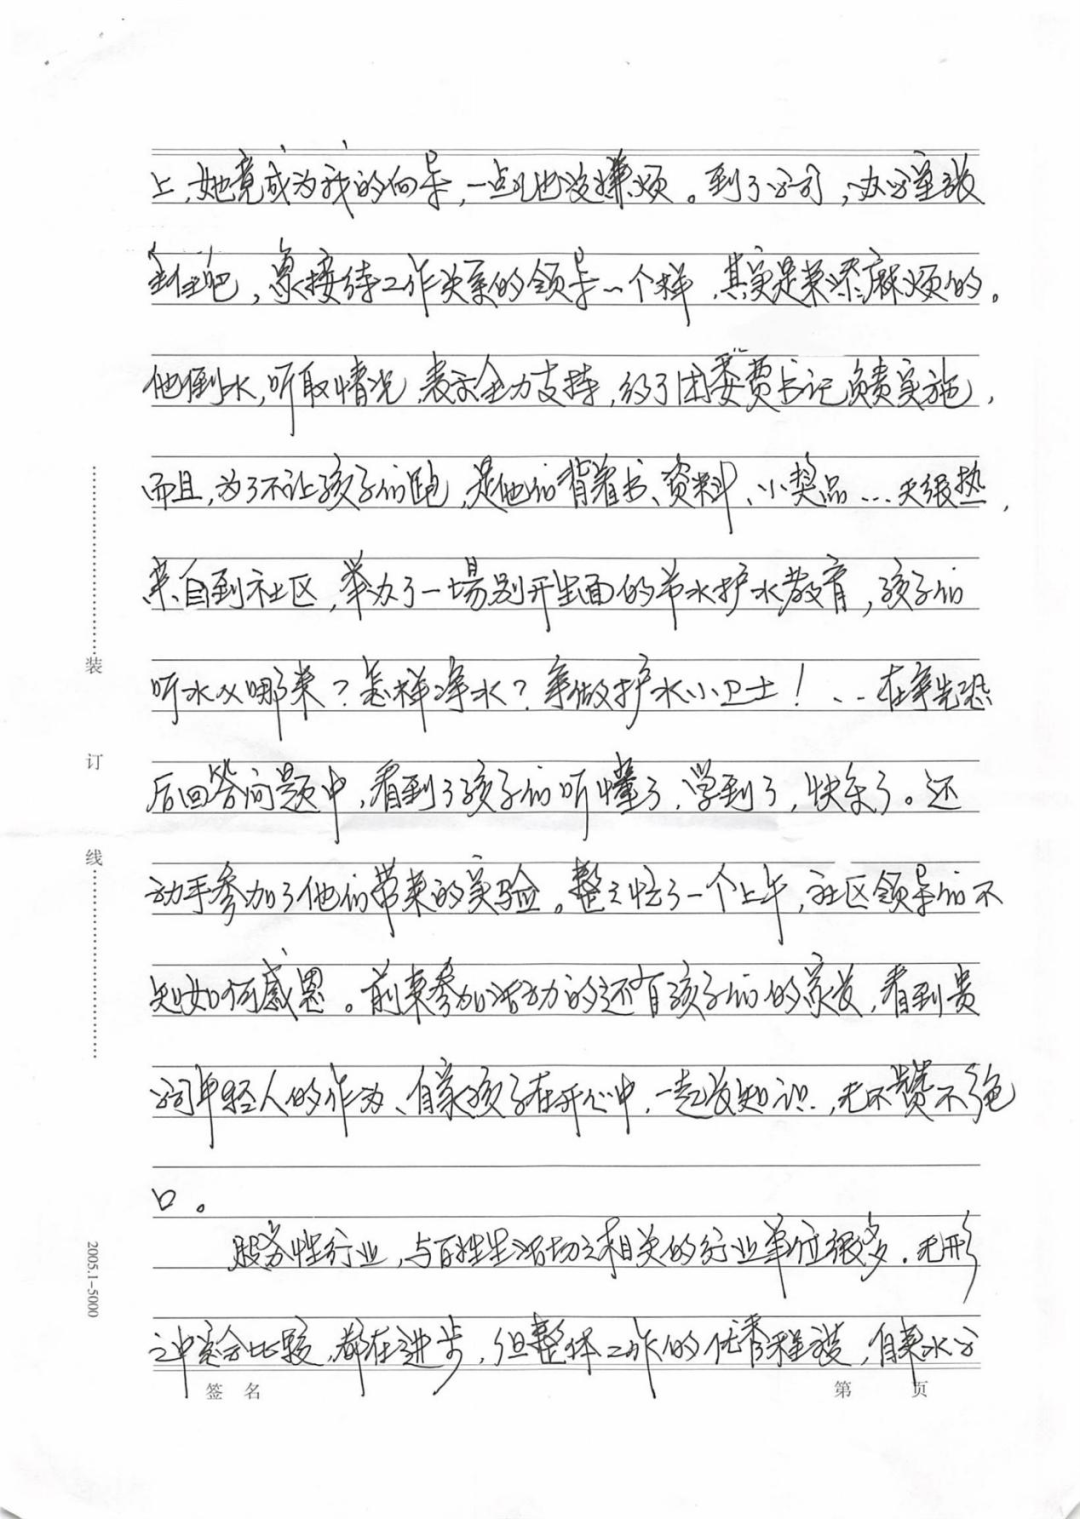 上，她竟成为我的向导，一点儿也没嫌烦。到了公司，办公室张
主任吧，象接待工作关系的领导一个样，其实是来添麻烦的。
他倒水，听取情况，表示全力支持，约了团委费书记负责实施，
而且，为了不让孩子们跑，是他们背着书、资料、小奖品…天很热，
亲自到社区，举办了一场别开生面的节水护水教育，孩子们
听水从哪来？怎样净水？争做护水小卫士！…在争先恐
后回答问题中，看到了孩子们听懂了，学到了，快乐了。还
动手参加了他们带来的实验。整整忙了一个上午，社区领导们不
知如何感恩。前来参加活动的还有孩子们的家长，看到贵
司年轻人的作为、自家孩子在开心中，一起长知识，无不赞不绝
口。
服务性行业，与百姓生活切切相关的行业单位很多，无形
之中总会比较，都在进步，但整体工作的优秀程度，自来水公
签 名
第 页
装
订
线
2005.1-5000